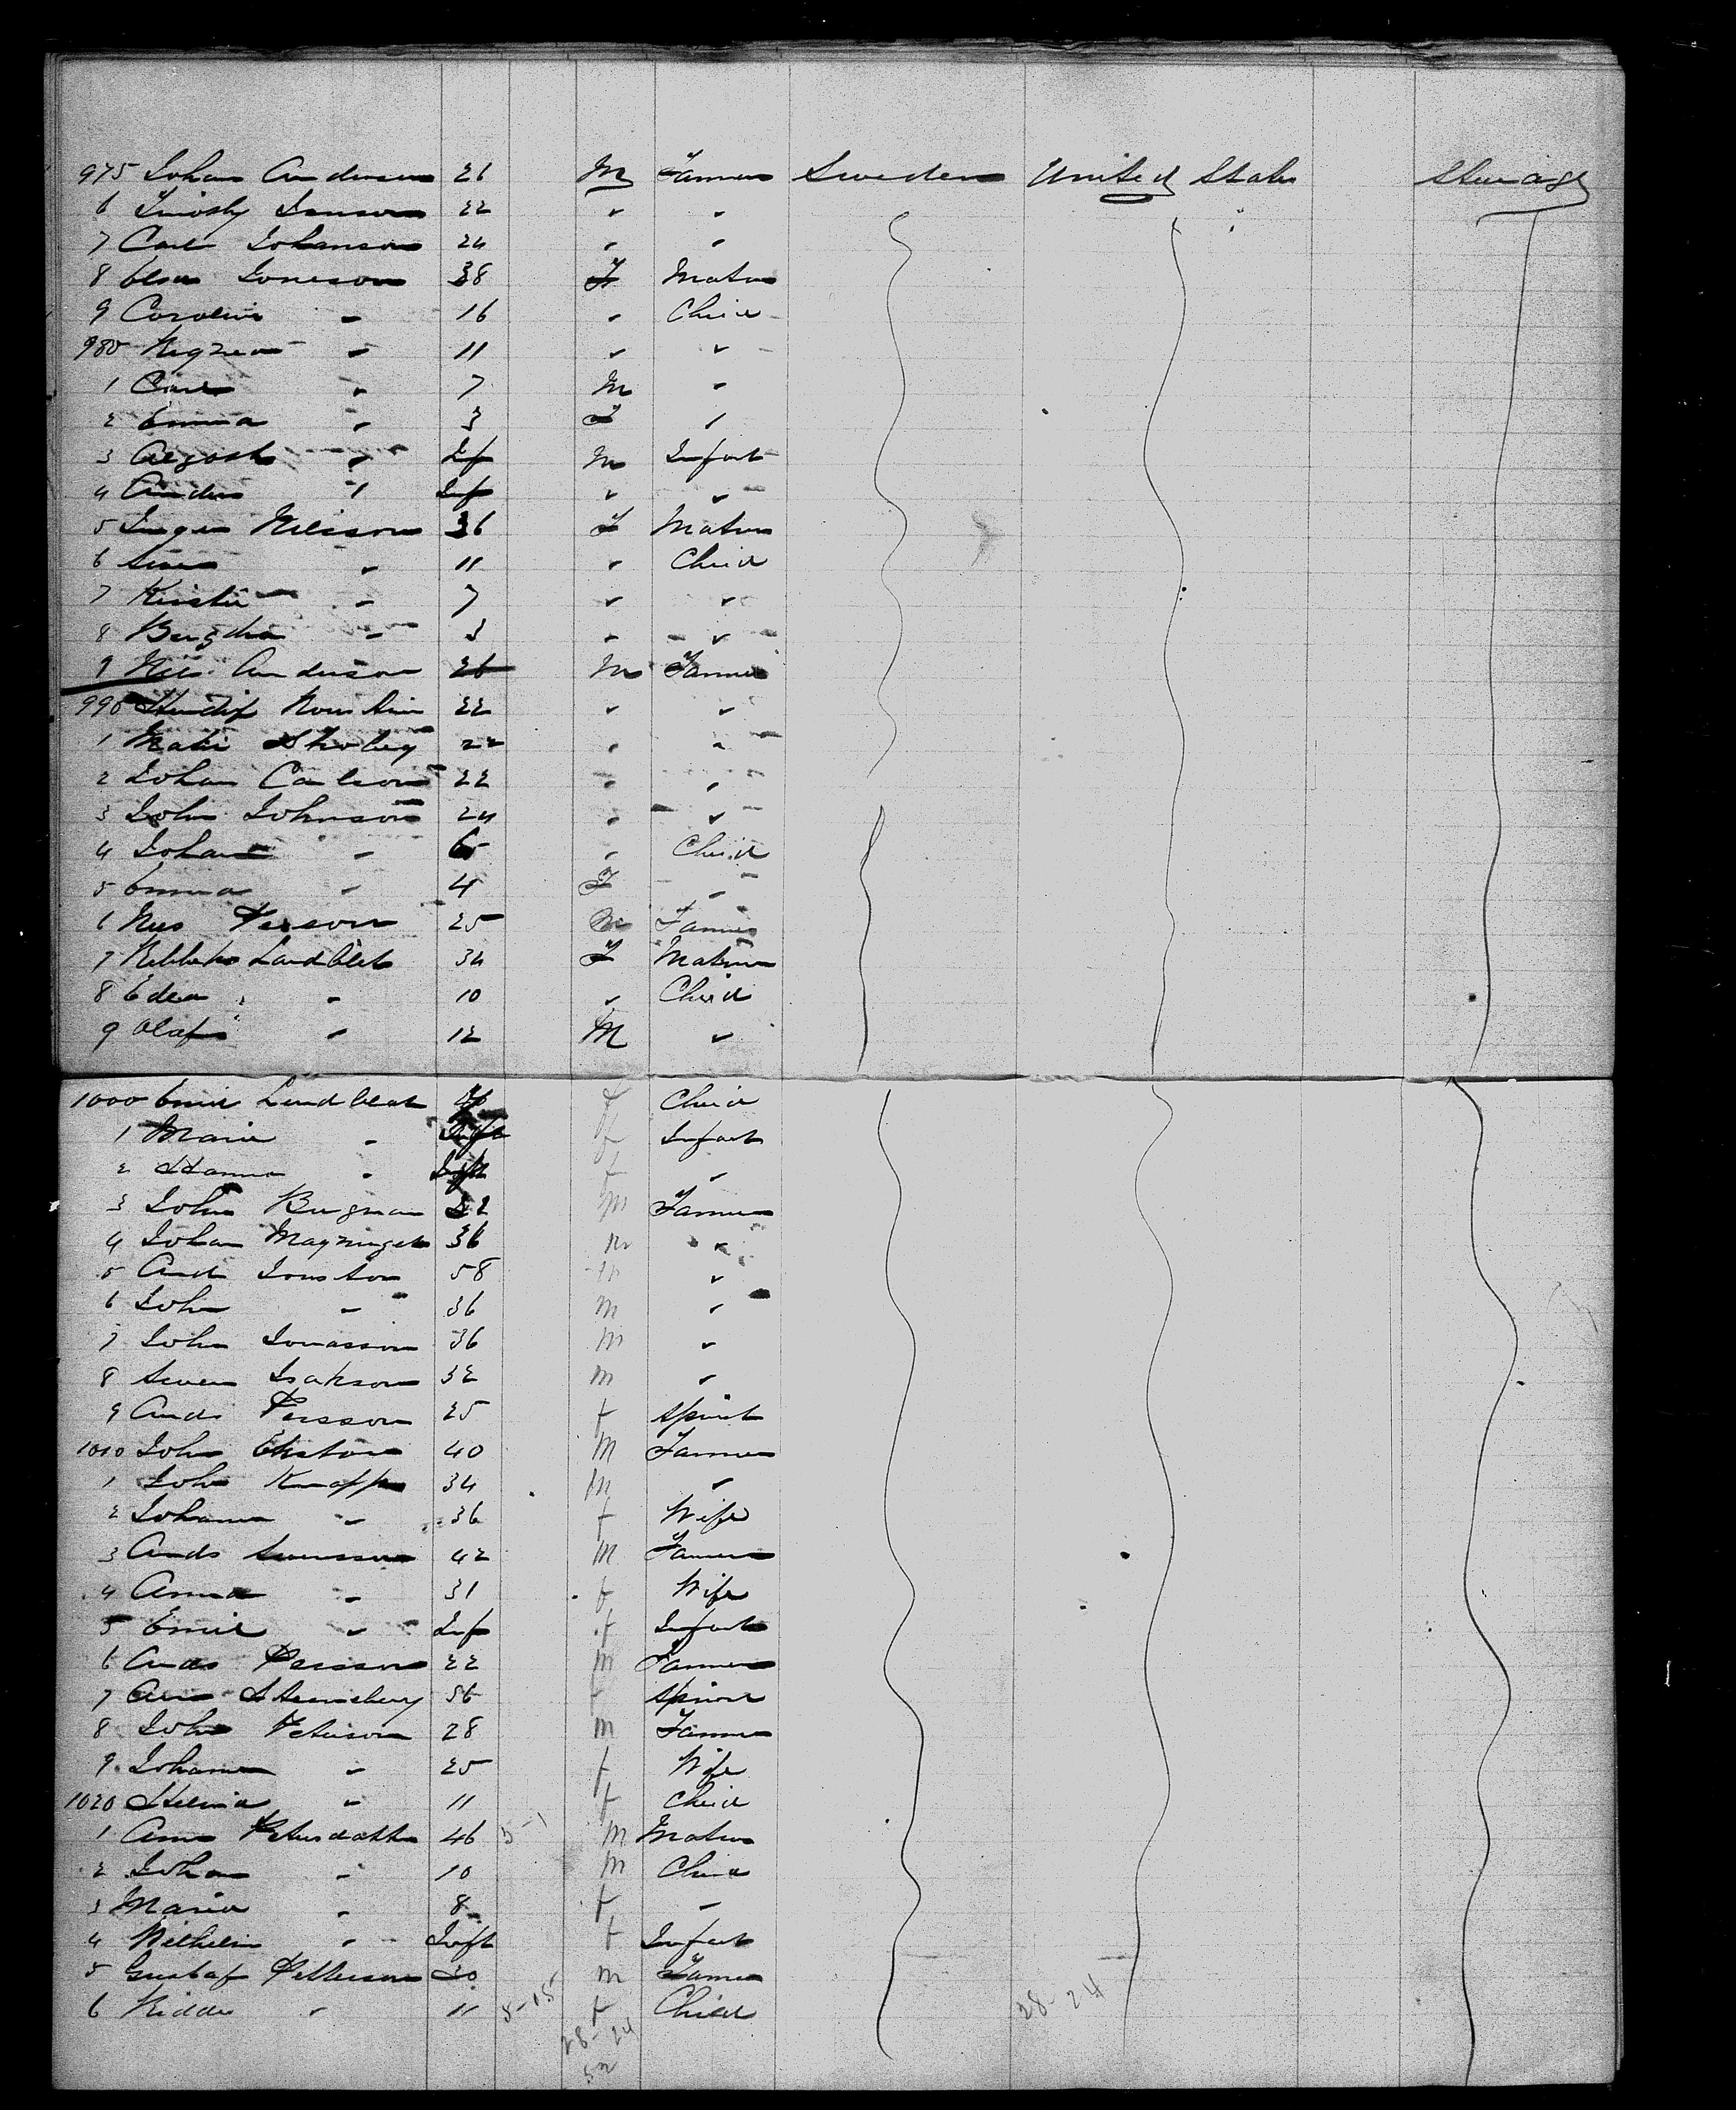 975 Johan Anderson 26 M Farmer Sweden United States Steerage
6 Jonson 22 " "
7 Carl Johanson 24 " "
8 Elsa Joneson 38 F Matron
9 Carolin " 16 " Child
980 " 11 " "
1 Carl " 7 M "
2 Emma " 3 F "
3 August " Inf M Infant
4 Anders " Inf " "
5 Inger Nilsson 36 F Matron
6 " 11 " Child
7 Kerstin " 7 " "
8 " 3 " "
9 Nils Anderson 26 M Farmer
990 22 " "
1 22 " "
2 Johan Carlson 22 " "
3 John Johnson 24 " "
4 Johan " 6 " Child
5 Emma " 4 F "
6 Nils Person 25 M Farmer
7 Lindblat 34 F Matron
8 Edla " 10 " Child
9 Olaf " 12 M "
1000 Emil Lindblat f Child
1 Maria " Inft f Infant
2 Hanna " Inft f "
3 John Bergman 32 m Farmer
4 Johan 36 m "
5 And 58 m "
6 John " 36 m "
7 John Jonasson 36 m "
8 Swen Isakson 32 m "
9 Ands Persson 25 f Spinst
1010 John 40 m Farmer
1 John Knapp 34 m "
2 Johanna " 36 f Wife
3 Ands Swensson 42 m Farmer
4 Anna " 31 f Wife
5 Emil " Inf f Infant
6 Ands Persson 22 m Farmer
7 56 f Spinst
8 John Peterson 28 m Farmer
9 Johanna " 25 f Wife
1020 Helma " 11 f Child
1 Anna Petersdotter 46 5-1 m Matron
2 Johan " 10 m Child
3 Maria " 8 f "
4 Wilhelm " Inft f Infant
5 Gustaf Petterson 30 m Farmer
6 " 11 5-15 f Child
28-24 28-24
52